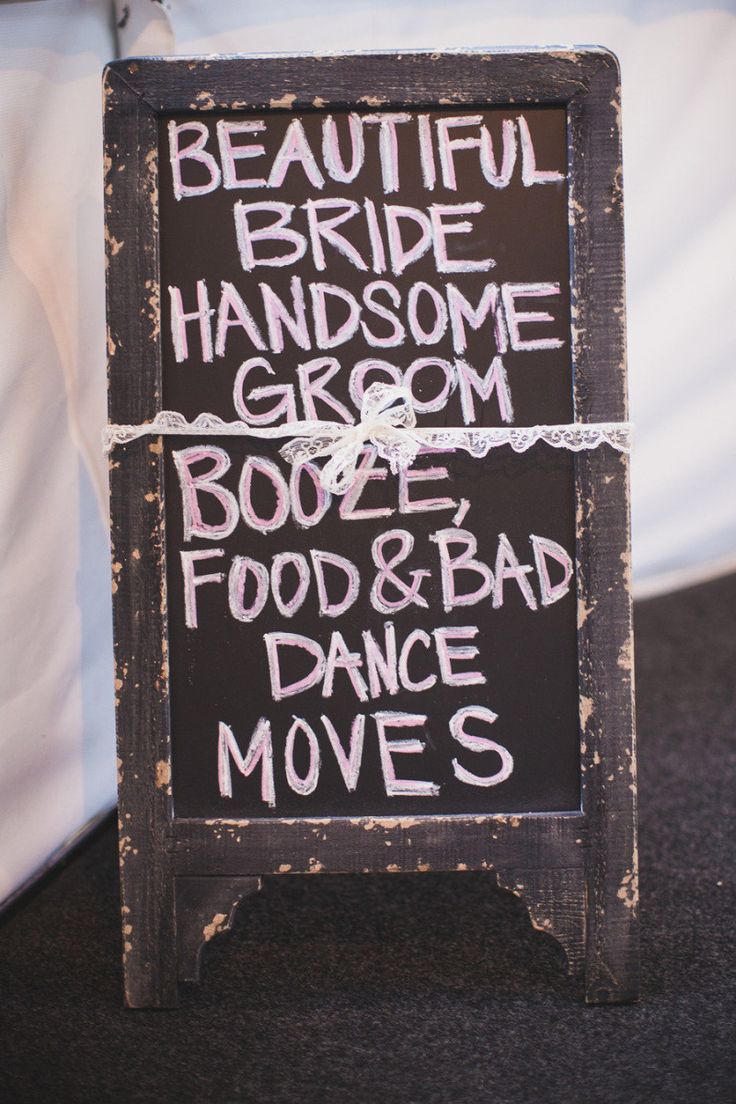 BEAUTIFUL
BRIDE
HANDSOME
GROOM
BOOZE,
FOOD & BAD
DANCE
MOVES